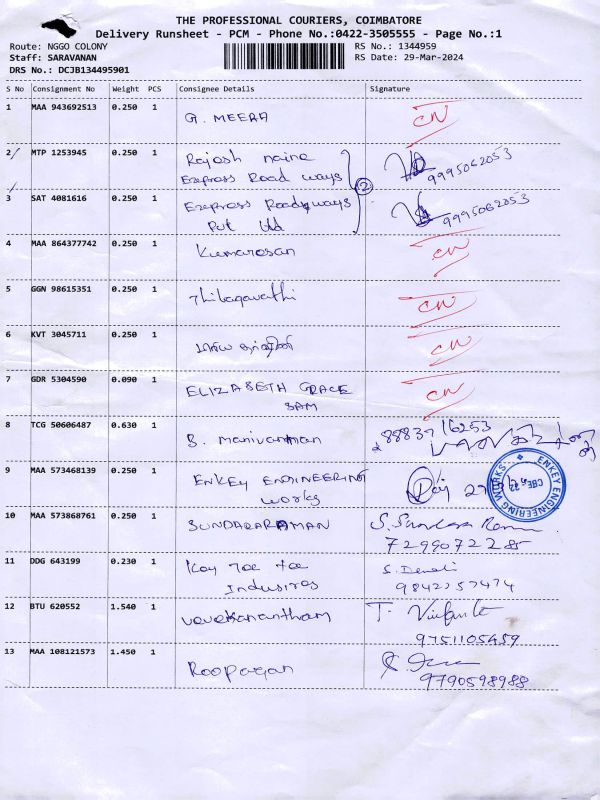 THE PROFESSIONAL COURIERS, COIMBATORE
Delivery Runsheet - PCM - Phone No.:0422-3505555 - Page No.:1
Route: NGGO COLONY
RS No.: 1344959
Staff: SARAVANAN
RS Date: 29-Mar-2024
DRS No.: DCJB134495901
S No Consignment No Weight PCS Consignee Details Signature
1 MAA 943692513 0.250 1 G. MEERA CN
2 MTP 1253945 0.250 1 Rajesh naine
Express Road ways 9995062053
3 SAT 4081616 0.250 1 Express Roadways
Pvt Ltd 9995062053
②
4 MAA 864377742 0.250 1 Kumaresan CN
5 GGN 98615351 0.250 1 Thilagavathi CN
6 KVT 3045711 0.250 1 CN
7 GDR 5304590 0.090 1 ELIZABETH GRACE CN
SAM
8 TCG 50606487 0.630 1 B. Manivannan 8883716253
9 MAA 573468139 0.250 1 ENKEY ENGINEERING
Works
ENKEY ENGINEERING WORKS
10 MAA 573868761 0.250 1 SUNDARARAMAN
7299072285
11 DDG 643199 0.230 1 Kay Tee Tee S. Devi
Indusires 9842257474
12 BTU 620552 1.540 1 vevekanantham T.
9751105459
13 MAA 108121573 1.450 1 Roopagan
9790598988